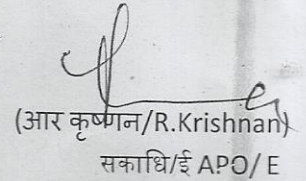 (आर कृष्णन/R.Krishnan)
सकाधि/ई APO/E